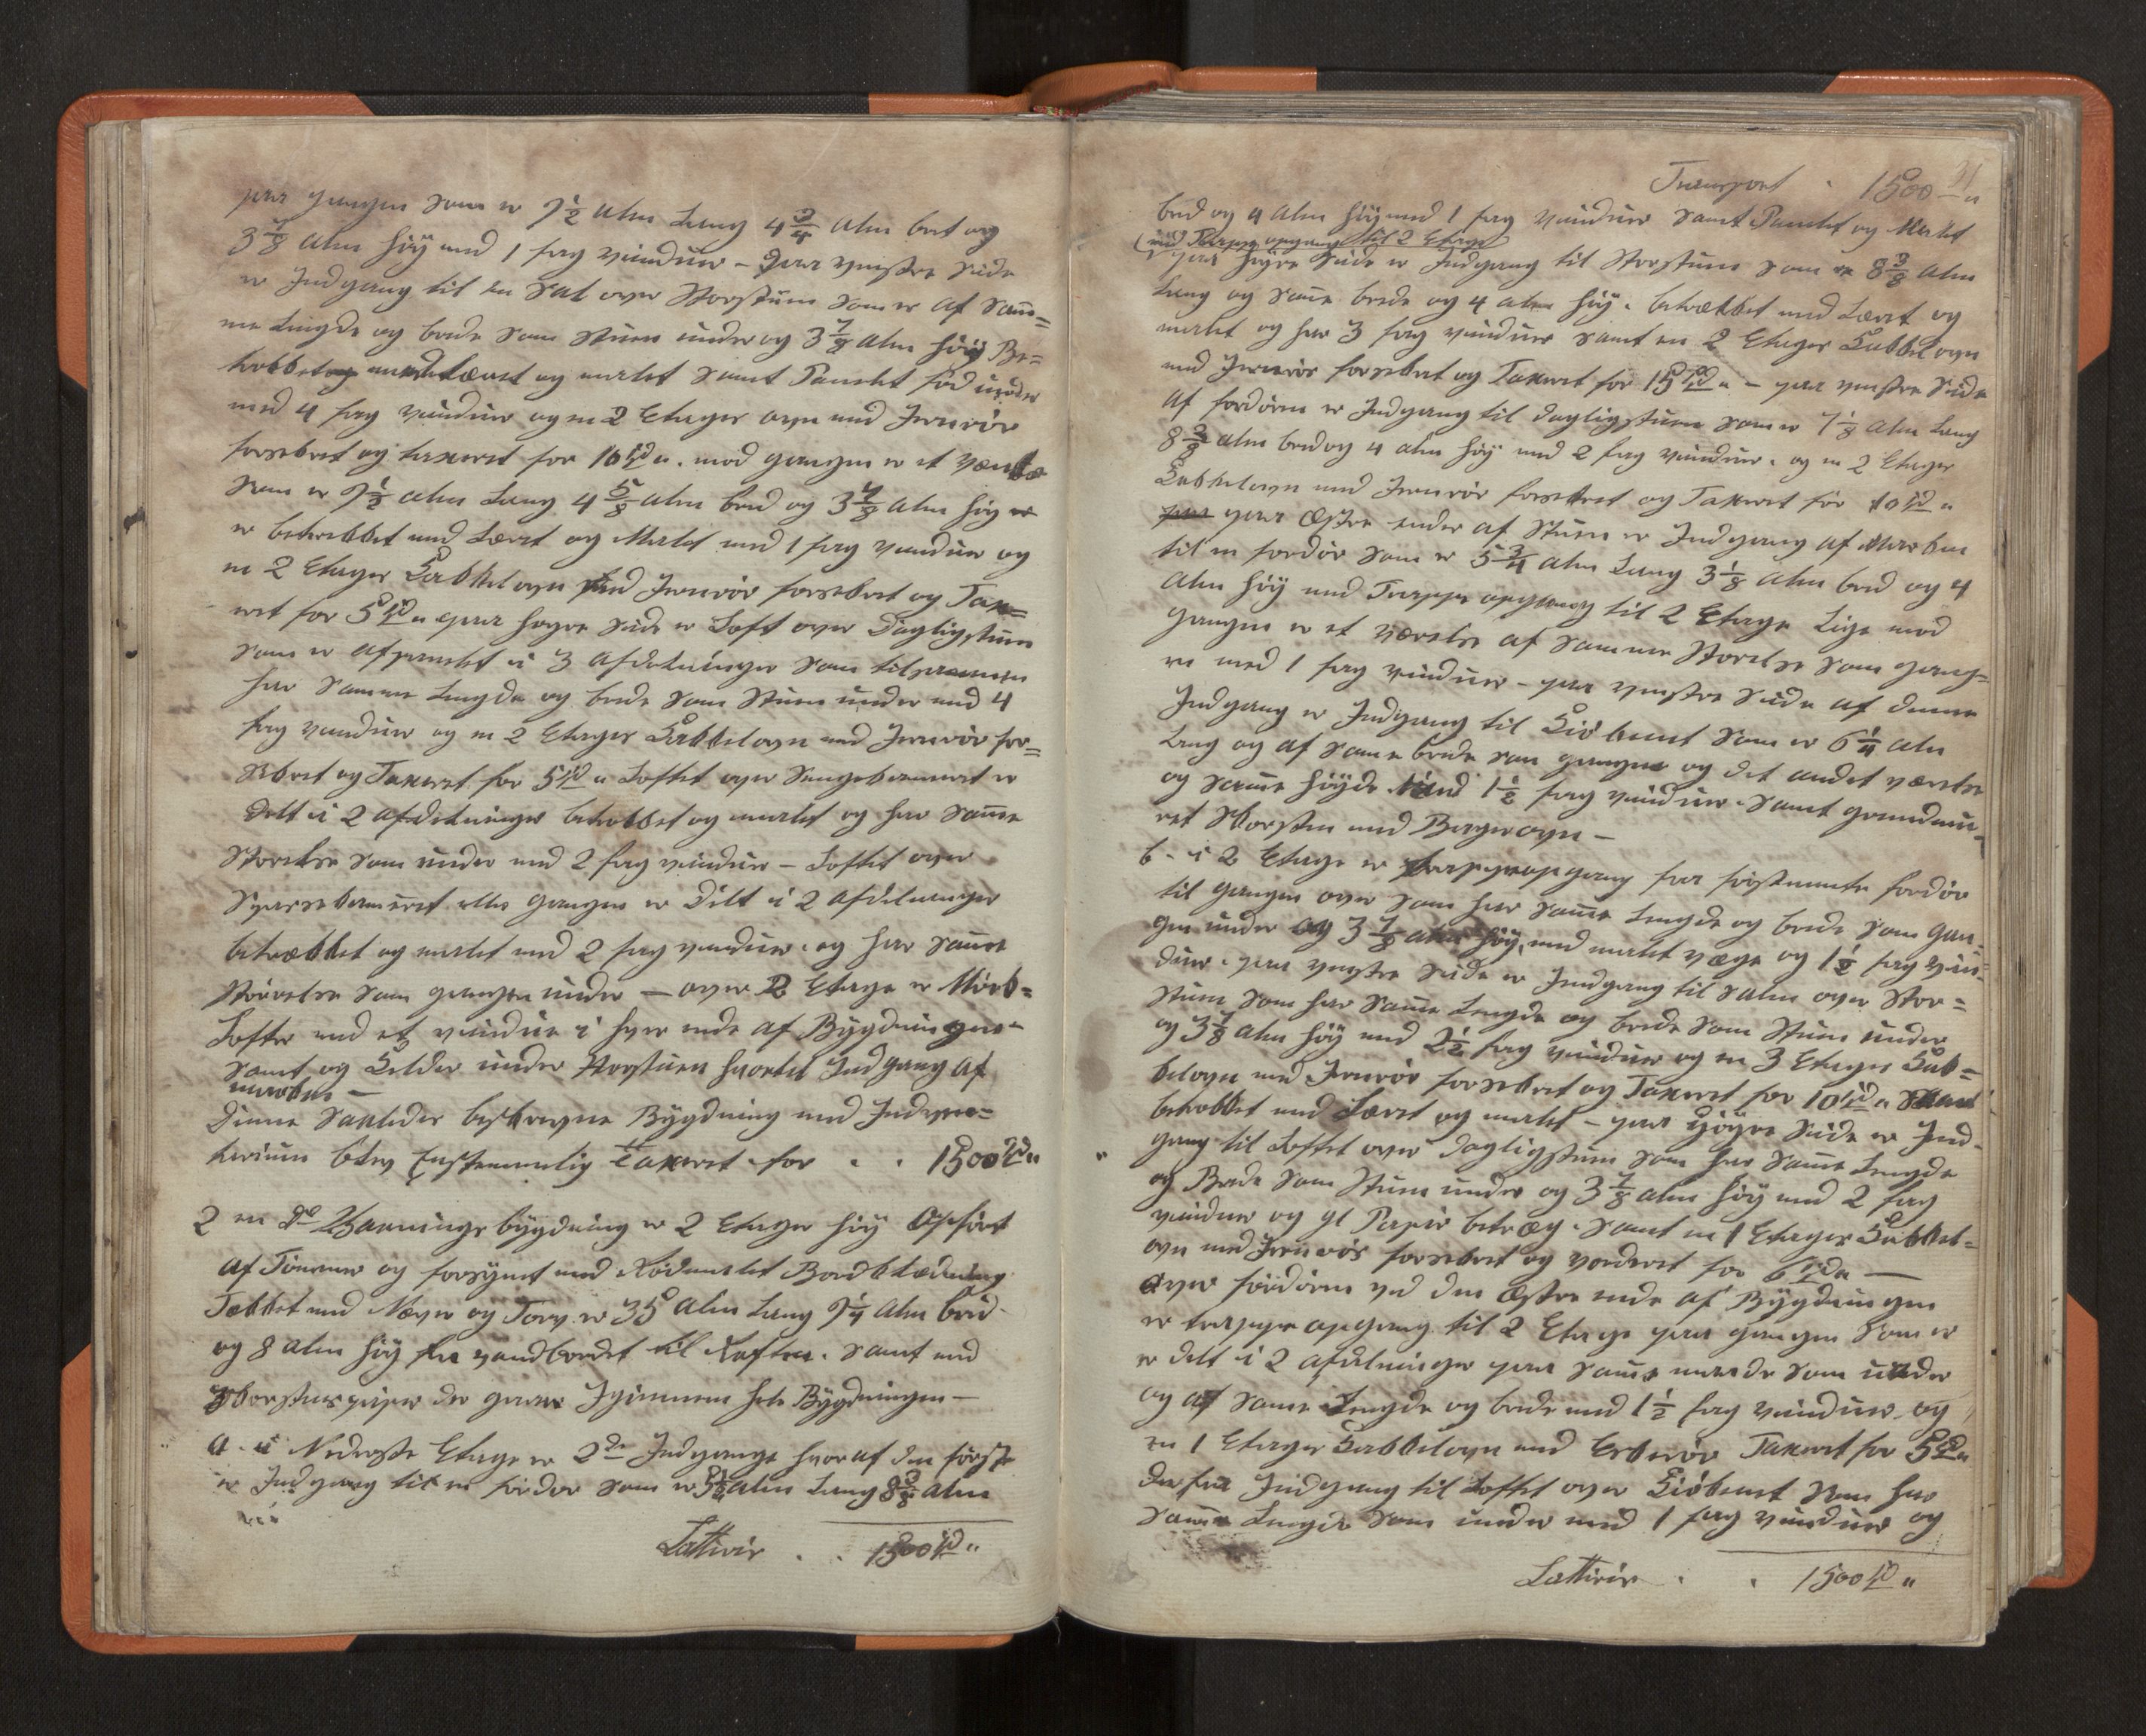 paa gangen som er 9 1/2 alen Lang 4 3/4 alen bret og
3 7/8 alen höÿ med 1 fag vinduer – Paa venstre Side
er Indgang til en Sal over Storstuen som er af sam=
me Lengde og brede som Stuen under og 3 7/8 alen höÿ Be=
trekket med Lærret og malet samt Panelet for under
med 4 fag vinduer og en 2 Etages ovn med Jernrör
forsikret og taxeret for 10 Spd „. mod gangen er et værelse
som er 9 1/2 alen Lang 4 5/8 alen bred og 3 7/8 alen höÿ
er betrekket med Lærret og Malet med 1 fag vinduer og
en 2 Etages Kakkelovn med Jernrör forsikret og Tax=
eret for 5 Spd „ paa högre Side er Loft over Dagligstuen
som er afpanelet i 3 afdelninger som tilsammen
har samme Lengde og brede som Stuen under med 4
fag vinduer og en 2 Etages Kakkelovn med Jernrör for=
sikret og Taxeret for 5 Spd „ Loftet over Sengekammeret er
Delt i 2 afdelninger betrekket og malet og har samme
Störelse som under med 2 fag vinduer – Loftet over
Spisekammeret eller gangen er Delt i 2 afdelninger
betrækket og malet med 2 fag vinduer og har samme
Störrelse som gangen under – over 2 Etage er Mörk=
Lofter med et vindue i hver ende af Bÿgdningen
samt og Kelder under Storstuen hvortil Indgang af
marken –
Denne saaledes beskrevne Bÿgdning med Indven=
tarium blev Enstemmelig Taxeret for . . 1500 Spd „
2 en do Vaaningsbÿgdning er 2 Etager höÿ Opfört
af Tömmer og forsÿnet med Rödmalet Bordklædning
Tækket med Næver og Torv er 35 alen Lang 9 1/4 alen bred
og 8 alen höÿ fra vandbordet til Raften. samt med
Skorstenspiper der gaar Igjennem hele Bÿgdningen –
a. i Nederste Etage er 2de Indgange hvoraf den förste
er Indgang til en fordör som er alen Lang 8 3/8 alen
Lattéris . . 1500 Spd „
Transport . 1500 „
bred og 4 alen höÿ med 1 fag vinduer samt Panelet og Malet
(med Trappe opgang til 2 Etage)
paa höÿre Side er Indgang til Storstuen som er 8 3/8 alen
Lang og same brede og 4 alen höÿ. betrækket med Lærret og
malet og har 3 fag vinduer samt en 2 Etages Kakkelovn
med Jernrör forsikret og Taxeret for 15 Spd „ – paa venstre Side
af fordören er Indgang til Dagligstuen som er 7 1/8 alen Lang
8 3/8 alen bred og 4 alen höÿ med 2 fag vinduer. og en 2 Etages
Kakkelovn med Jernrör forsikret og Taxeret för 10 Spd „
paa Östre ender af Stuen er Indgang af Marken
til en fordör som er 5 3/4 alen Lang 3 1/8 alen bred og 4
alen höÿ med Trappe opgang til 2 Etage Lige mod
gangen er et værelse af samme Storelse som gang=
en med 1 fag vinduer – paa venstre Side af denne
Indgang er Indgang til Kiökenet som er 6 1/4 alen
Lang og af same brede som gangen og det andet værelse
og samme höÿde Med 1 1/2 fag vinduer. samt grundmu=
ret Skorsten med Bagerovn –
b. i 2 Etage er trappeopgang fra förstnemte fordör
til gangen over som har same Lengde og brede som gan=
gen under og 3 7/8 alen höÿ, med malet væge og 1 1/2 fag vin=
duer. paa venstre Side er Indgang til Salen over Stor=
stuen som har same Lengde og brede som Stuen under
og 3 7/8 alen höÿ med 2 1/2 fag vinduer og en 3 Etages Kak=
kelovn med Jernrör forsikret og Taxeret for 10 Spd „ samt
betrekket med Lærret og malet – paa Höÿre Side er Ind=
gang til Loftet over Dagligstuen som har same Lengde
og Brede som Stuen under og 3 7/8 alen höÿ med 2 fag
vinduer og gl Papir betræg. samt en 1 Etages Kakkel=
ovn med Jernrör forsikret og vorderet for 6 Spd „ –
over fördören ved den Östre ende af Bÿgdningen
er trappe opgang til 2 Etage paa gangen som er
er delt i 2 afdelninger paa same maade som under
og af same Lengde og brede med 1 1/2 fag vinduer og
en 1 Etages Kakkelovn med Taxeret for 5 Spd „
derfra Indgang til Loftet over Kiökenet som har
same Lengde som under med 1 fag vinduer og
Lattéris . . 1500 Spd „